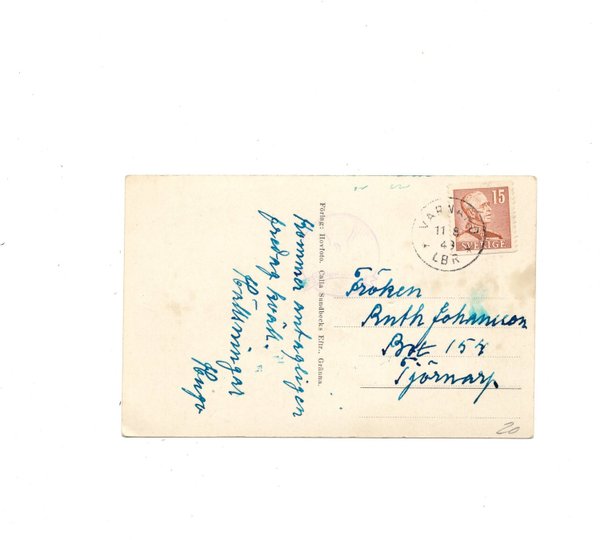 Kommer antagligen
fredag kväll.
Hälsningar
Hugo
Förlag: Hovfoto. Calla Sundbecks Eftr., Gränna.
15
SVERIGE
11 8
43
LBR
Fröken
Ruth Johansson
Box 154
Tjörnarp
20